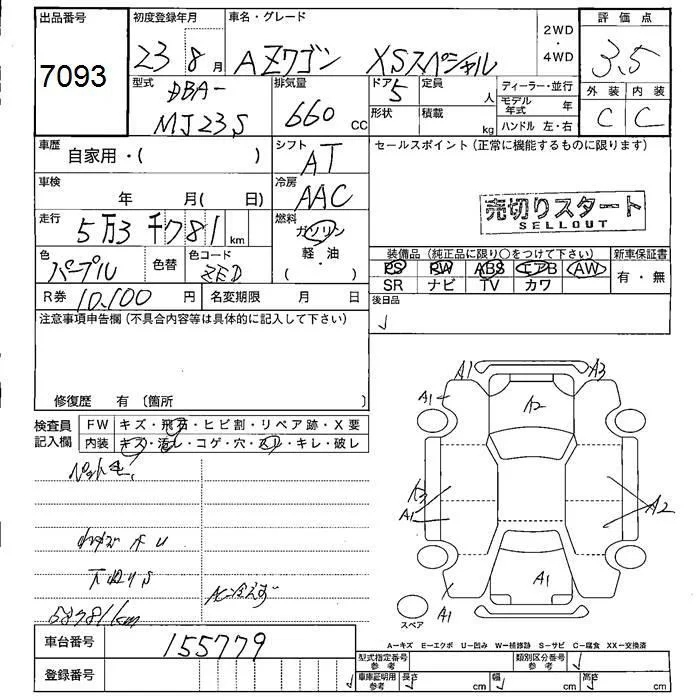 出品番号
7093
初度登録年月
23 8 月
車名・グレード
AZワゴン XSスペシャル
2WD
・
4WD
評価点
3.5
外装 内装
C C
型式
DBA-
MJ23S
排気量
660 CC
ドア 5
形状
定員 人
積載 kg
ディーラー・並行
モデル年式 年
ハンドル 左・右
車歴
自家用・( )
シフト
AT
セールスポイント(正常に機能するものに限ります)
売切りスタート
SELLOUT
車検
年 月( 日)
冷房
AAC
走行
5万3千781 km
燃料
ガソリン
・
軽・油
( )
色
パープル
色替
色コード
ZED
装備品(純正品に限り○をつけて下さい)
PS PW ABS エアB AW
SR ナビ TV カワ
新車保証書
有・無
R券 10,100 円
名変期限 月 日
後日品
注意事項申告欄(不具合内容等は具体的に記入して下さい)
修復歴 有〔箇所 〕
検査員記入欄
FW キズ・飛石・ヒビ割・リペア跡・X要
内装 キズ・汚レ・コゲ・穴・スレ・キレ・破レ
下廻りS
AC冷えず
53781km
A1 A3
A1 A2
A3
A1 A2
A1
A1
スペア
A-キズ E-エクボ U-凹み W-補修跡 S-サビ C-腐食 XX-交換済
車台番号 155779
登録番号
型式指定番号
参考
類別区分番号
参考
車庫証明用
参考
長さ cm 幅 cm 高さ cm